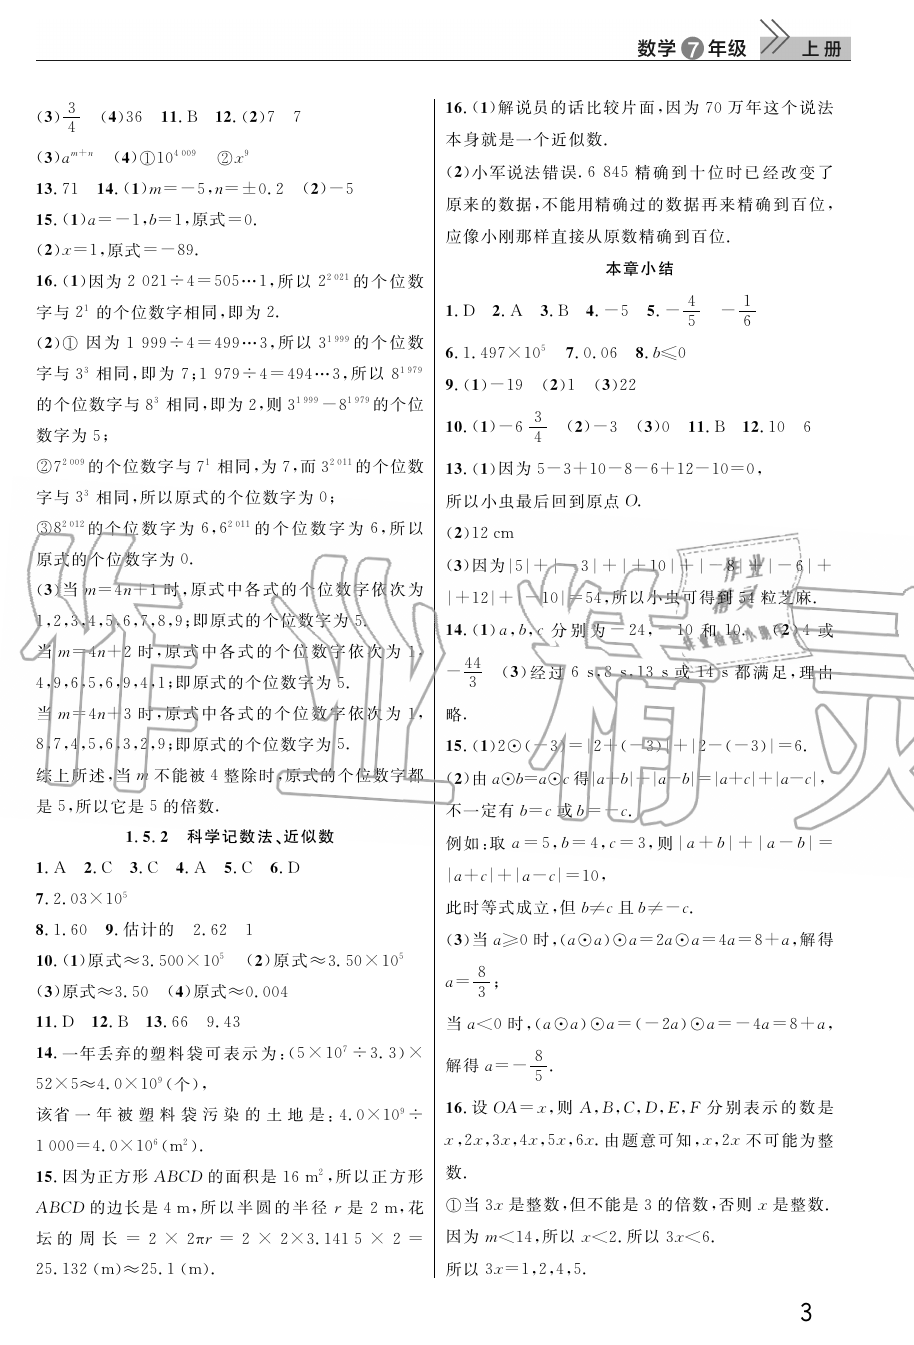 数学 7 年级 上册
(3)3/4 (4)36 11.B 12.(2)7 7
(3)aᵐ⁺ⁿ (4)①10⁴⁰⁰⁹ ②x⁹
13.71 14.(1)m=-5,n=±0.2 (2)-5
15.(1)a=-1,b=1,原式=0.
(2)x=1,原式=-89.
16.(1)因为2 021÷4=505…1,所以2²⁰²¹的个位数
字与2¹的个位数字相同,即为2.
(2)①因为1 999÷4=499…3,所以3¹⁹⁹⁹的个位数
字与3³相同,即为7;1 979÷4=494…3,所以8¹⁹⁷⁹
的个位数字与8³相同,即为2,则3¹⁹⁹⁹-8¹⁹⁷⁹的个位
数字为5;
②7²⁰⁰⁹的个位数字与7¹相同,为7,而3²⁰¹¹的个位数
字与3³相同,所以原式的个位数字为0;
③8²⁰¹²的个位数字为6,6²⁰¹¹的个位数字为6,所以
原式的个位数字为0.
(3)当m=4n+1时,原式中各式的个位数字依次为
1,2,3,4,5,6,7,8,9;即原式的个位数字为5.
当m=4n+2时,原式中各式的个位数字依次为1,
4,9,6,5,6,9,4,1;即原式的个位数字为5.
当m=4n+3时,原式中各式的个位数字依次为1,
8,7,4,5,6,3,2,9;即原式的个位数字为5.
综上所述,当m不能被4整除时,原式的个位数字都
是5,所以它是5的倍数.
1.5.2 科学记数法、近似数
1.A 2.C 3.C 4.A 5.C 6.D
7.2.03×10⁵
8.1.60 9.估计的 2.62 1
10.(1)原式≈3.500×10⁵ (2)原式≈3.50×10⁵
(3)原式≈3.50 (4)原式≈0.004
11.D 12.B 13.66 9.43
14.一年丢弃的塑料袋可表示为:(5×10⁷÷3.3)×
52×5≈4.0×10⁹(个),
该省一年被塑料袋污染的土地是:4.0×10⁹÷
1 000=4.0×10⁶(m²).
15.因为正方形ABCD的面积是16 m²,所以正方形
ABCD的边长是4 m,所以半圆的半径r是2 m,花
坛的周长=2×2πr=2×2×3.141 5×2=
25.132 (m)≈25.1 (m).
16.(1)解说员的话比较片面,因为70万年这个说法
本身就是一个近似数.
(2)小军说法错误.6 845精确到十位时已经改变了
原来的数据,不能用精确过的数据再来精确到百位,
应像小刚那样直接从原数精确到百位.
本章小结
1.D 2.A 3.B 4.-5 5.-4/5 -1/6
6.1.497×10⁵ 7.0.06 8.b≤0
9.(1)-19 (2)1 (3)22
10.(1)-6 3/4 (2)-3 (3)0 11.B 12.10 6
13.(1)因为5-3+10-8-6+12-10=0,
所以小虫最后回到原点O.
(2)12 cm
(3)因为|5|+|-3|+|+10|+|-8|+|-6|+
|+12|+|-10|=54,所以小虫可得到54粒芝麻.
14.(1)a,b,c分别为-24,-10和10. (2)4或
-44/3 (3)经过6 s,8 s,13 s或14 s都满足,理由
略.
15.(1)2⊙(-3)=|2+(-3)|+|2-(-3)|=6.
(2)由a⊙b=a⊙c得|a+b|+|a-b|=|a+c|+|a-c|,
不一定有b=c或b=-c.
例如:取a=5,b=4,c=3,则|a+b|+|a-b|=
|a+c|+|a-c|=10,
此时等式成立,但b≠c且b≠-c.
(3)当a≥0时,(a⊙a)⊙a=2a⊙a=4a=8+a,解得
a=8/3;
当a<0时,(a⊙a)⊙a=(-2a)⊙a=-4a=8+a,
解得a=-8/5.
16.设OA=x,则A,B,C,D,E,F分别表示的数是
x,2x,3x,4x,5x,6x.由题意可知,x,2x不可能为整
数.
①当3x是整数,但不能是3的倍数,否则x是整数.
因为m<14,所以x<2.所以3x<6.
所以3x=1,2,4,5.
3
作业精灵